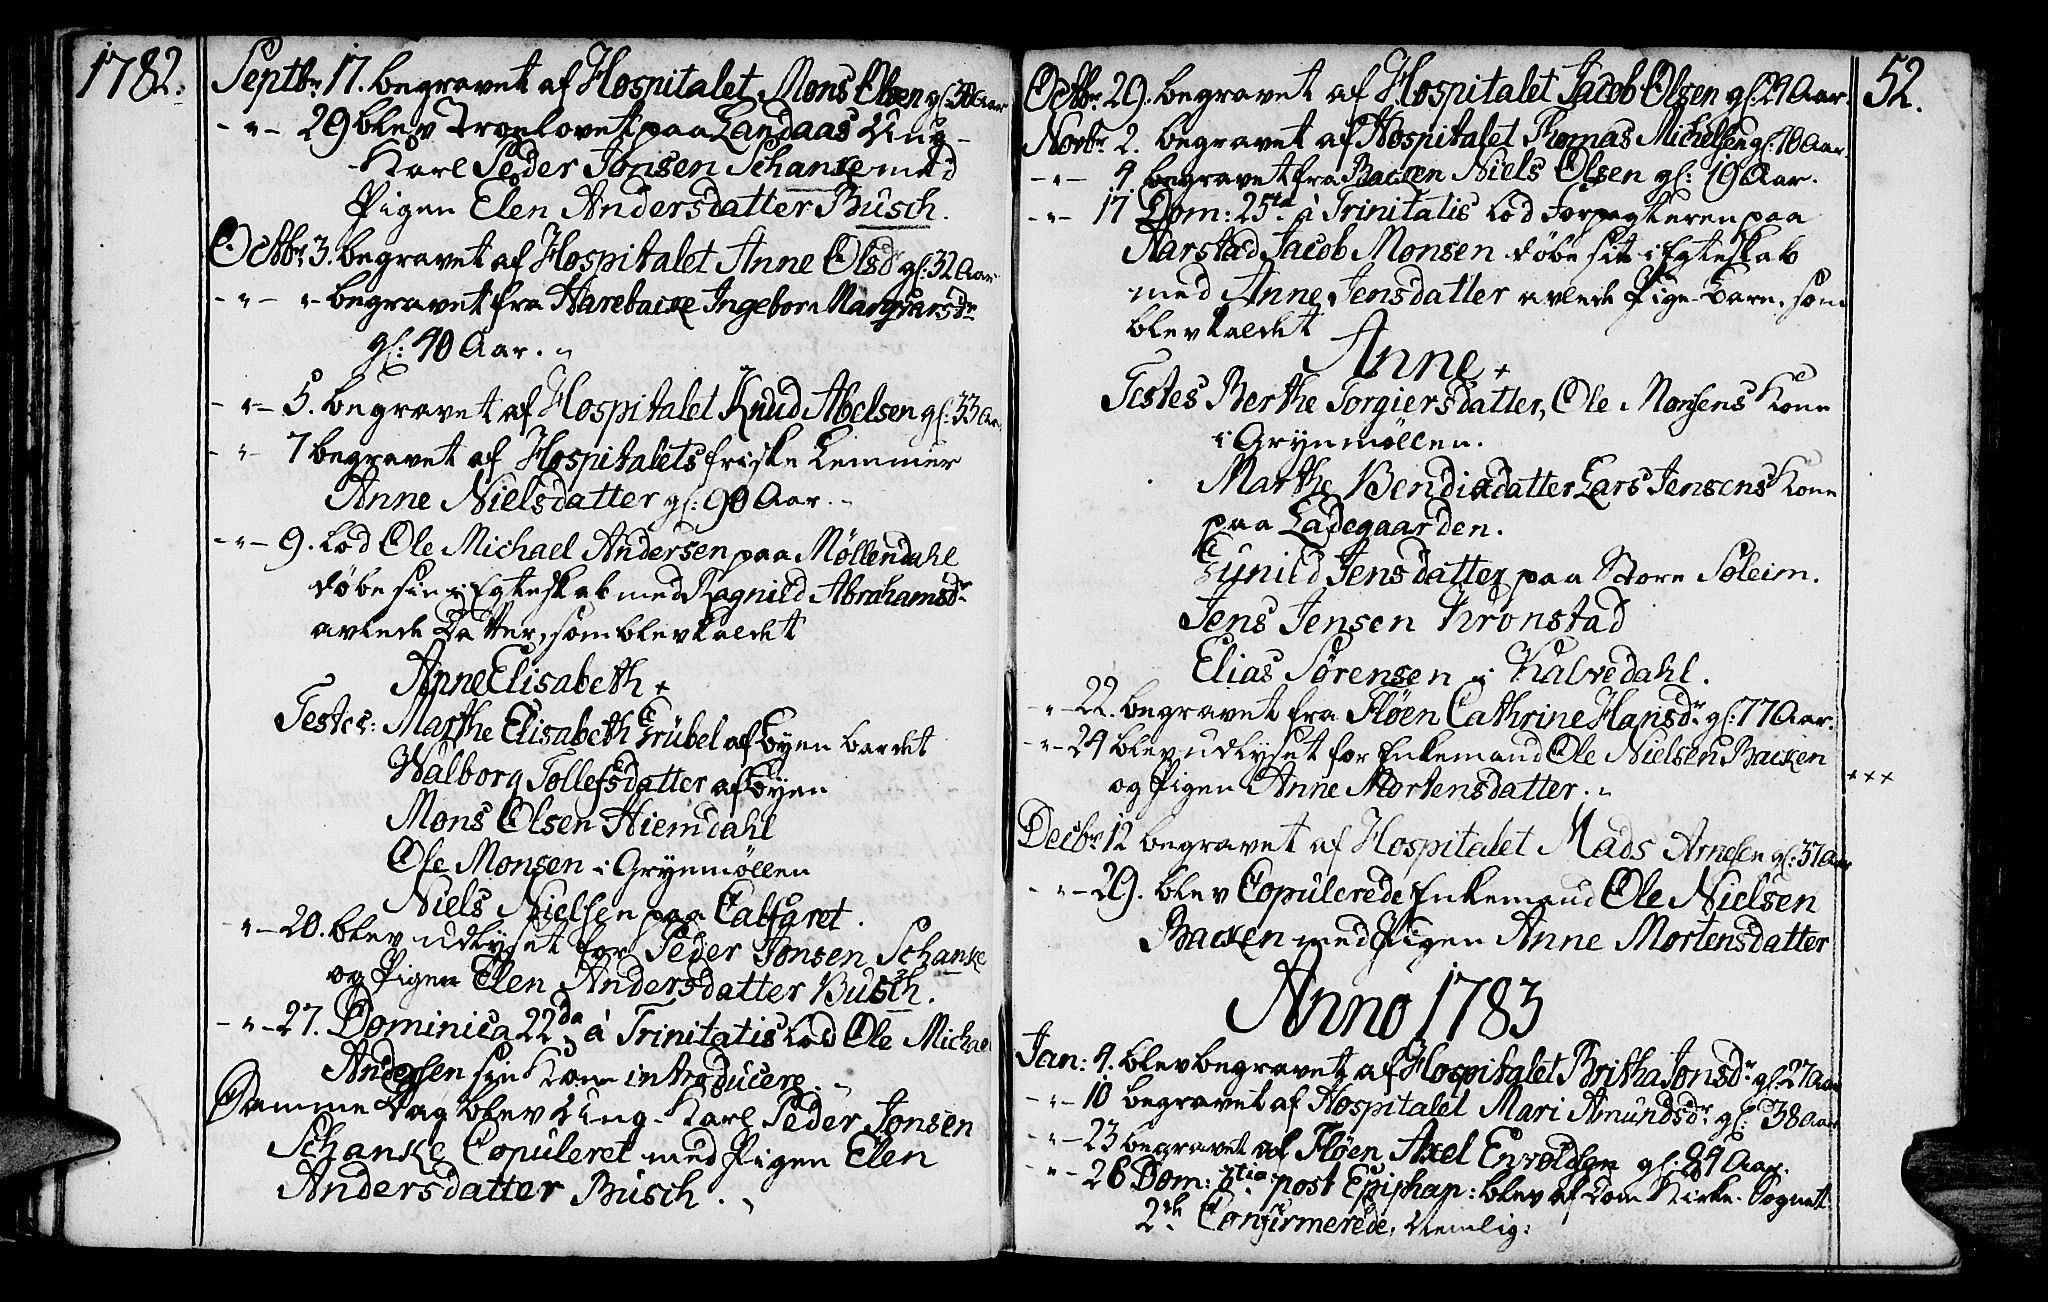 1782.
Septbr 17. begravet af Hospitalet Mons Olsen gl: 30 Aar
- " - 29 blev Troelovet paa Landaas Ung-
Karl Peder Jonsen Schanke med
Pigen Elen Andersdatter Busch.
Octbr 3. begravet af Hospitalet Anne Olsdr gl: 32 Aar
- " - " - begravet fra Harebacke Ingebor
gl: 40 Aar. "
- " - 5. begravet af Hospitalet Knud Abelsen gl: 33 Aar
- " - 7 begravet af Hospitalets friske Lemmer
Anne Nielsdatter gl: 90 Aar. "
- " - 9. lod Ole Michael Andersen paa Møllendahl
døbe sin i Egteskab med Ragnild Abrahamsdr
avlede Datter, som blev kaldet
Anne Elisabeth +
Testes: Marthe Elisabeth Grübel af Byen bar det
Walborg Tollefsdatter af Byen
Mons Olsen Hiemdahl
Ole Monsen i Grynmøllen
Niels Nielsen paa Calfaret.
- " - 20. blev udlyset for Peder Jonsen Schanke
og Pigen Elen Andersdatter Busch.
- " - 27. Dominica 22da à Trinitatis lod Ole Michael
Andersen sin Kone introducere. "
Samme Dag blev Ung-Karl Peder Jonsen
Schanke Copuleret med Pigen Elen
Andersdatter Busch. "
52.
Octbr 29. begravet af Hospitalet Jacob Olsen gl: 29 Aar.
Novbr 2. begravet af Hospitalet Thomas Michelsen gl: 70 Aar.
- " - 4 begravet fra Backen Niels Olsen gl: 19 Aar.
- " - 17 Dom: 25ta à Trinitatis lod Forpagteren paa
Aarstad Jacob Monsen døbe sit i Egteskab
med Anne Jensdatter avlede Pige-Barn, som
blev kaldet
Anne +
Testes Berthe Torgiersdatter, Ole Monsens Kone
i Grynmøllen.
Marthe Bendixdatter Lars Jensens Kone
paa Ladegaarden.
Gunild Jensdatter paa Store Soleim.
Jens Jensen Kronstad
Elias Sørensen i Kalvedahl.
- " - 22. begravet fra Fløen Cathrine Hansdr gl: 77 Aar.
- " - 24 blev udlyset for Enkemand Ole Nielsen Backen
og Pigen Anne Mortensdatter. "
+++
Decbr 12 begravet af Hospitalet Mads Arnesen gl: 37 Aar
- " - 29. blev Copulerede Enkemand Ole Nielsen
Backen med Pigen Anne Mortensdatter
Anno 1783
Jan: 4. blev begravet af Hospitalet Britha Jonsdr gl: 27 Aar
- " - 10 begravet af Hospitalet Mari Amundsdr gl: 38 Aar
- " - 23 begravet af Fløen Axel Envoldsen gl: 84 Aar.
- " - 26 Dom: 3tia post Epiphan: blev af Dom-Kirke-Sognet
2de Confirmerede, Nemlig: